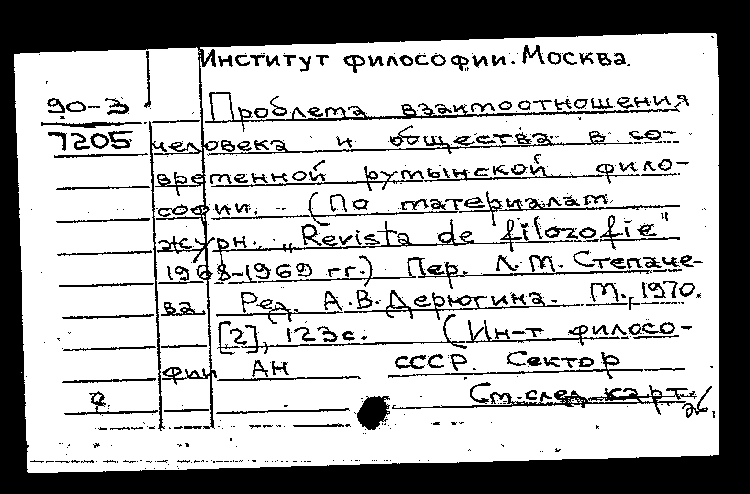 Институт философии. Москва.
90-3
7205
Проблема взаимоотношения
человека и общества в со-
временной румынской фило-
софии. - (По материалам
журн. „Revista de filozofie"
1968-1969 гг.) Пер. Л.М. Степаче-
ва. Ред. А.В. Дерюгина. М., 1970.
[2], 123 с. (Ин-т филосо-
фии АН СССР. Сектор
См. след. карт.